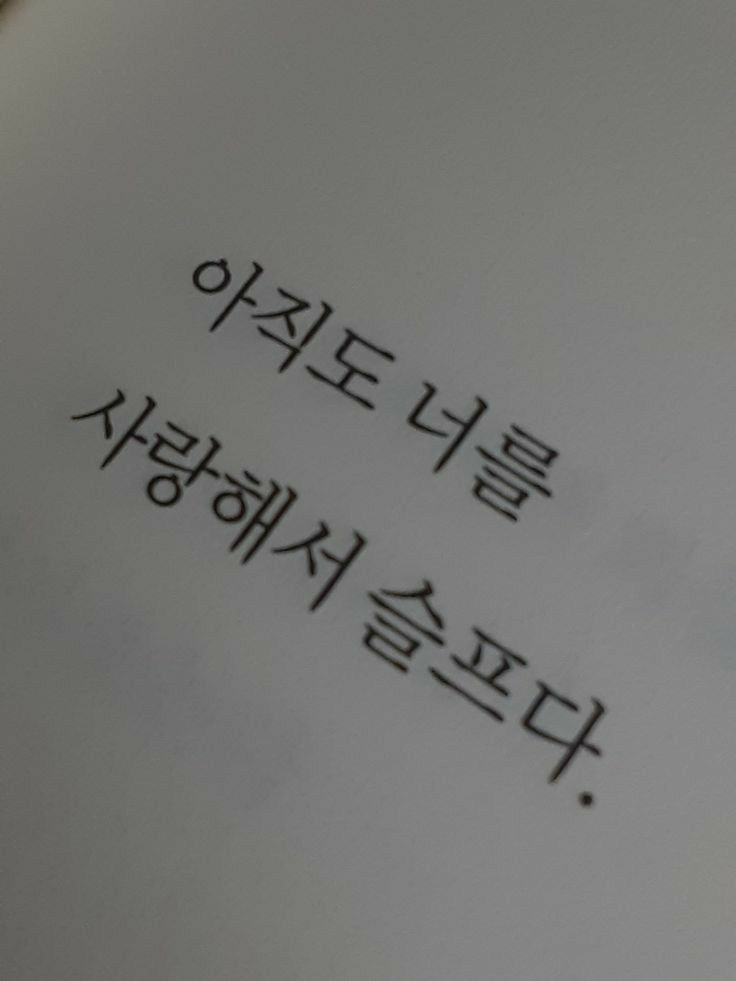 아직도 너를
사랑해서 슬프다.